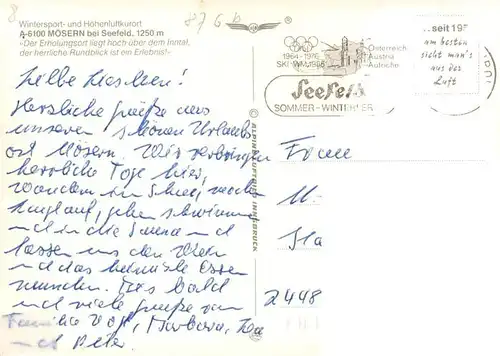 8
87 G b
Wintersport- und Höhenluftkurort
A-6100 MÖSERN bei Seefeld, 1250 m
»Der Erholungsort liegt hoch über dem Inntal,
der herrliche Rundblick ist ein Erlebnis!«
1964-1976
SKI-WM 1985
Seefeld
SOMMER-WINTER
Österreich
Austria
Autriche
...seit 19
am besten
sieht man's
aus der
Luft
© ALPINE LUFTBILD INNSBRUCK
Liebe
Herzliche Grüße aus
unserem schönen Urlaubs
ort Mösern. Wir verbringen
herrliche Tage hier,
wandern im Schnee, machen
Langlauf, gehen schwimmen
und in die Sauna und
lassen uns den Wein
und das Essen
munden. Bis bald
und viele Grüße von
Familie Vogt, Barbara,
und Peter
Frau
2448